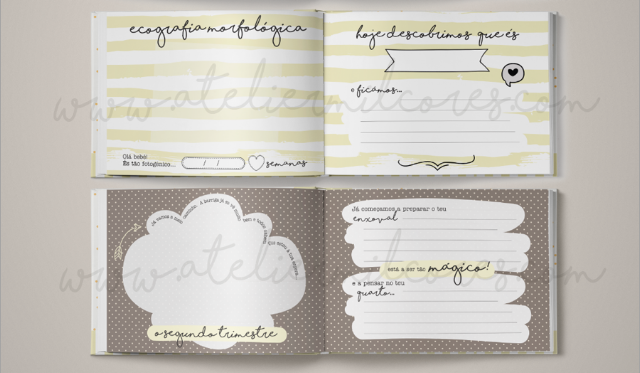 ecografia morfológica
Olá bebé!
És tão fotogénico...
/ /
semanas
hoje descobrimos que és
e ficamos...
www.ateliermilcores.com
o segundo trimestre
Já começamos a preparar o teu
enxoval
está a ser tão mágico!
e a pensar no teu
quarto...
www.ateliermilcores.com